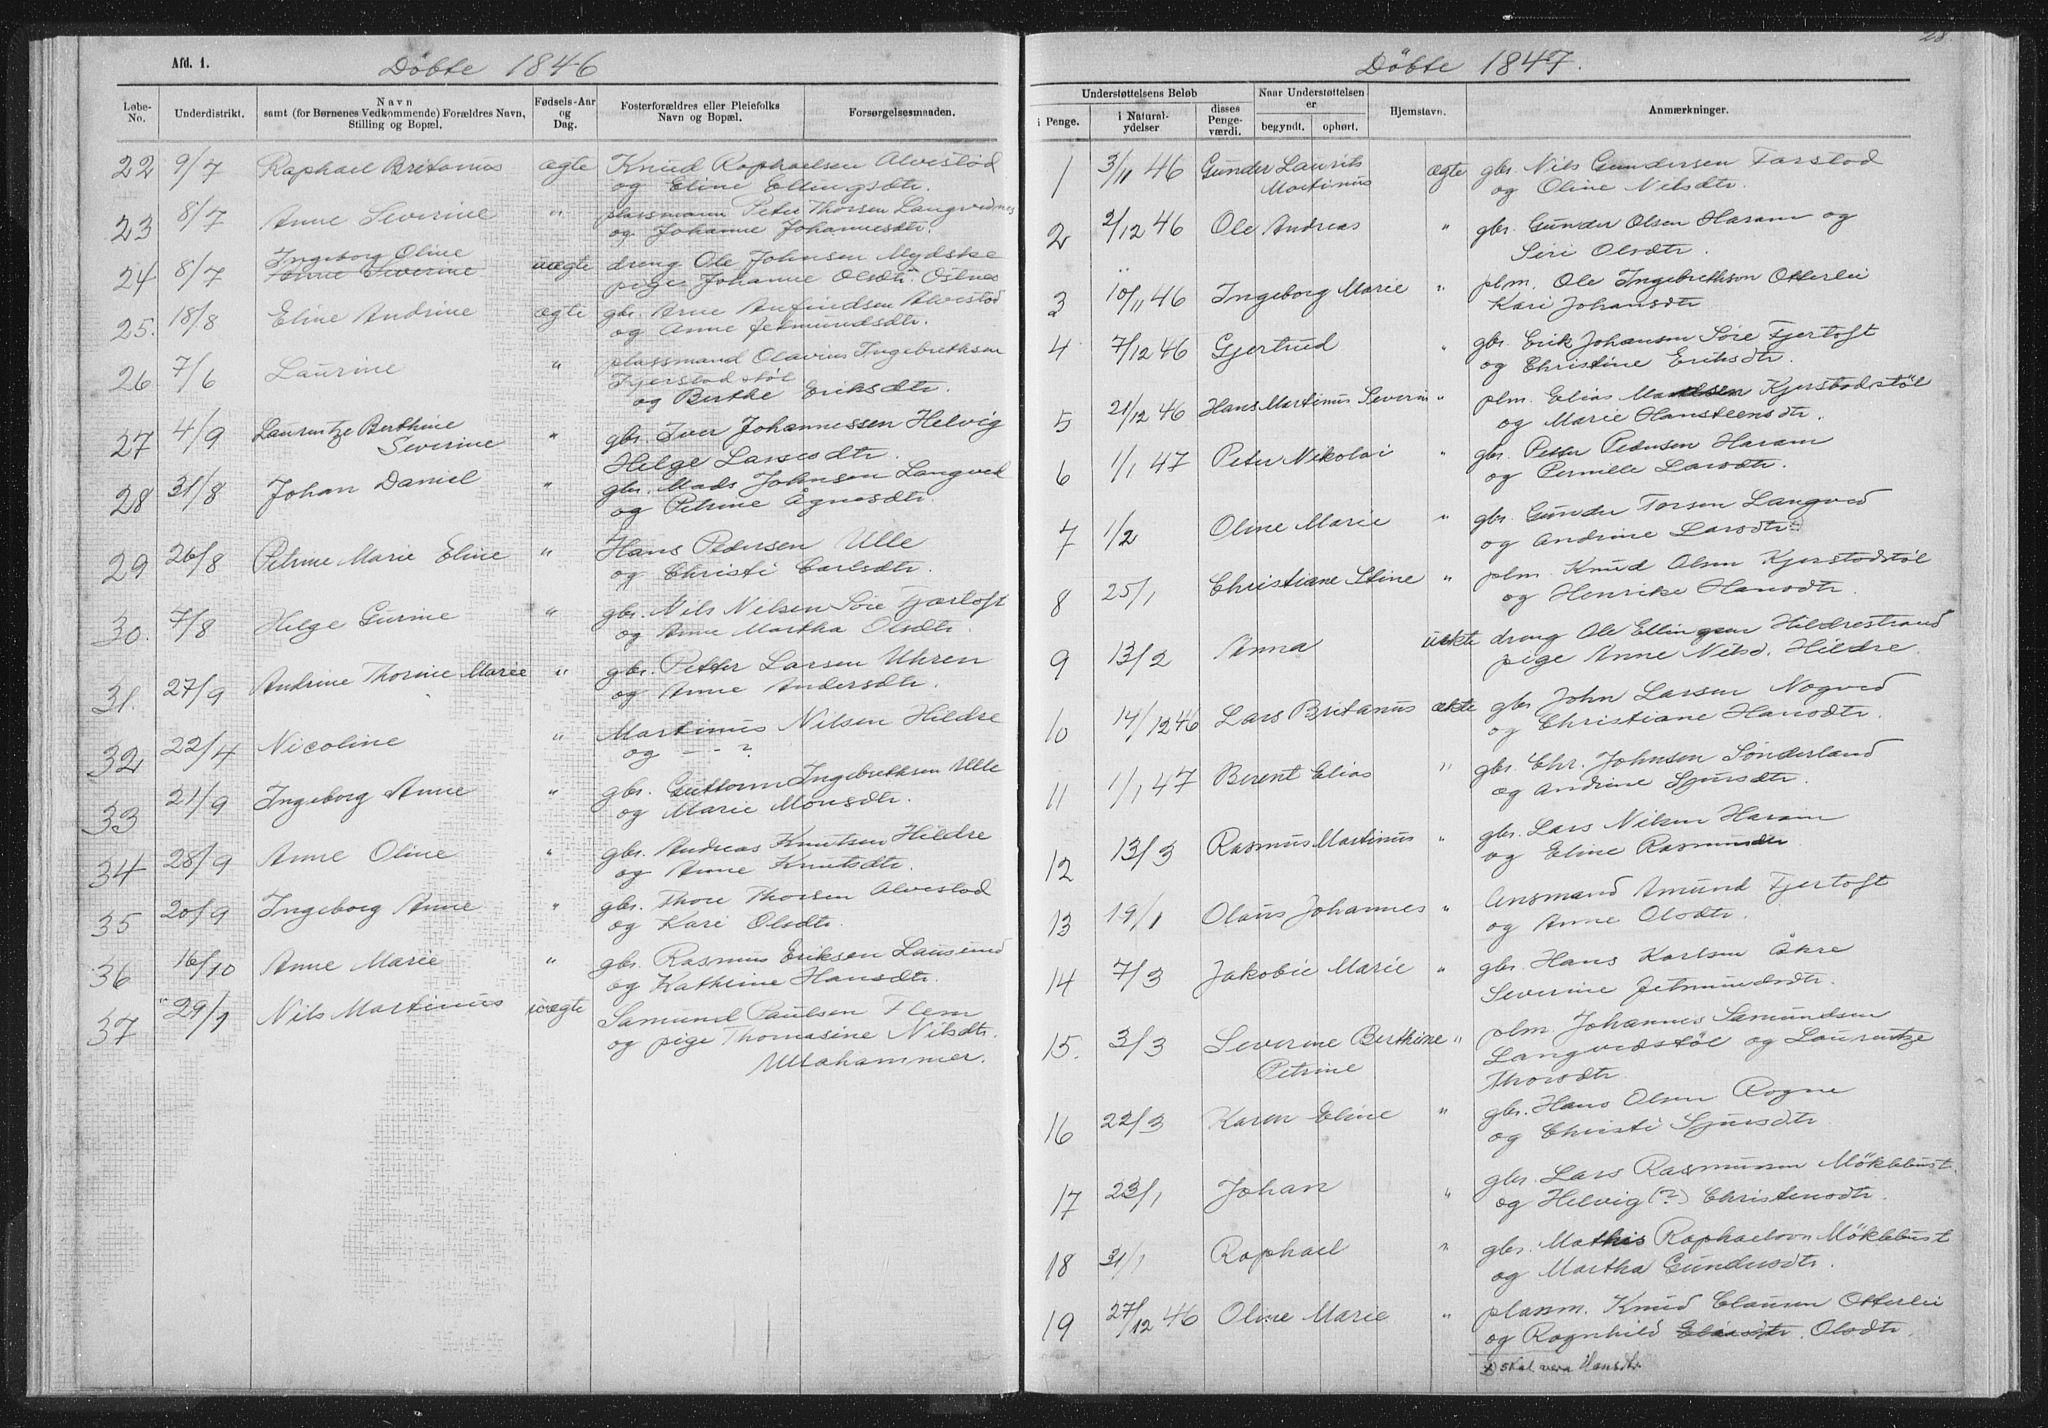 Afd. 1.
Döbte 1846
Løbe-No.
Underdistrikt.
Navn
samt (for Børnenes Vedkommende) Forældres Navn,
Stilling og Bopæl.
Fødsels-Aar og Dag.
Fosterforældres eller Pleiefolks
Navn og Bopæl.
Forsørgelsesmaaden.
22 9/7 Raphael Britanus ægte Knud Raphaelsen Alvestad
og Eline Ellingsdtr.
23 8/7 Anne Severine " plassmann Peter Thorsen Langvednes
og Johanne Johannesdtr.
Ingeborg Oline
24 8/7 Anne Severine uægte dreng Ole Johnsen Mydske
pige Johanne Olsdtr. Osnes
25. 18/8 Eline Andrine ægte gbr. Arne Anfindsen Alvestad
og Anne Jetmundsdtr.
26 7/6 Laurine " plassmand Olavius Ingebrethsen
Kjerstadstøl
og Berthe Eriksdtr.
27 4/9 Laurentze Berthine
Severine " gbr. Iver Johannessen Helvig
Helge Larsesdtr.
28 31/8 Johan Daniel " gbr. Mads Johnsen Langved
og Petrine Ågnesdtr.
29 26/8 Petrine Marie Eline " Hans Pedersen Ulle
og Christi Carlsdtr.
30. 7/8 Helge Gurine " gbr. Nils Nilsen Söre Fjærtoft
og Anne Martha Olsdtr.
31. 27/9 Andrine Thorine Marie " gbr. Petter Larsen Uhren
og Anne Andersdtr.
32 22/4 Nicoline " Martinus Nilsen Hildre
og - - ?
33 21/9 Ingeborg Anne " gbr. Guttorm Ingebrethsen Ulle
og Marie Monsdtr.
34 28/9 Anne Oline " gbr. Andreas Knutsen Hildre
og Anne Knutsdtr.
35 20/9 Ingeborg Anne " gbr. Thore Thorsen Alvestad
og Kari Olsdtr.
36 16/10 Anne Marie " gbr. Rasmus Eriksen Lausund
og Kathrine Hansdtr.
37 29/1 Nils Martinus uægte Samund Paulsen Flem
og pige Thomasine Nilsdtr.
Ullahammer.
28.
Döbte 1847.
Understøttelsens Beløb
i Penge.
i Natural-ydelser
disses Penge-værdi.
Naar Understøttelsen er
begyndt.
ophørt.
Hjemstavn.
Anmærkninger.
1 3/11 46 Gunder Laurits
Martinus ægte gbr. Nils Gundersen Farstad
og Oline Nilsdtr.
2 2/12 46 Ole Andreas " gbr. Gunder Olsen Haram og
Siri Olsdtr.
3 10/11 46 Ingeborg Marie " plm. Ole Ingebrethson Otterlei
Kari Johansdtr
4 7/12 46 Gjertrud " gbr. Erik Johansen Söre Fjertoft
og Christine Eriksdtr.
5 21/12 46 Hans Martinus Severin " plm. Elias Madsen Kjerstadstöl
og Marie Hansteensdtr.
6 1/1 47 Peter Nikolai " gbr. Petter Pedersen Haram
og Pernille Larsdtr.
7 1/2 Oline Marie " gbr. Gunder Torsen Langved
og Andrine Larsdtr.
8 25/1 Christiane Stine " plm. Knud Olsen Kjerstadstöl
og Henrike Hansdtr.
9 13/2 Anna uekte dreng Ole Ellingsen Hildrestrand
pige Anne Nilsd. Hildre
10 14/12 46 Lars Britanus ekte gbr John Larsen Nogved
og Christiane Hansdtr.
11 1/1 47 Berent Elias " gbr. Chr. Johnsen Sönderland
og Andrine Sjursdtr.
12 13/3 Rasmus Martinus " gbr. Lars Nilsen Haram
og Eline Rasmusdtr
13 19/1 Olaus Johannes " Ansmand Amund Fjertoft
og Anne Olsdtr.
14 7/3 Jakobie Marie " gbr. Hans Karlsen Åkre
Severine Jetmundsdtr.
15. 3/3 Severine Berthine
Petrine " plm. Johannes Samundsen
Langvedstöl og Laurentze
Thorsdtr.
16 22/3 Karen Eline " gbr. Hans Olsen Rogne
og Christi Sjursdtr
17 23/1 Johan " gbr. Lars Rasmussen Möklebust.
og Helvig (?) Christensdtr.
18 31/1 Raphael " gbr. Mathis Raphaelsen Möklebust
og Martha Gundersdtr.
19 27/12 46 Oline Marie " plasm. Knud Clausen Otterlei
og Ragnhild Eliasdtr. Olsdtr.
x) skal vera Hansdtr.